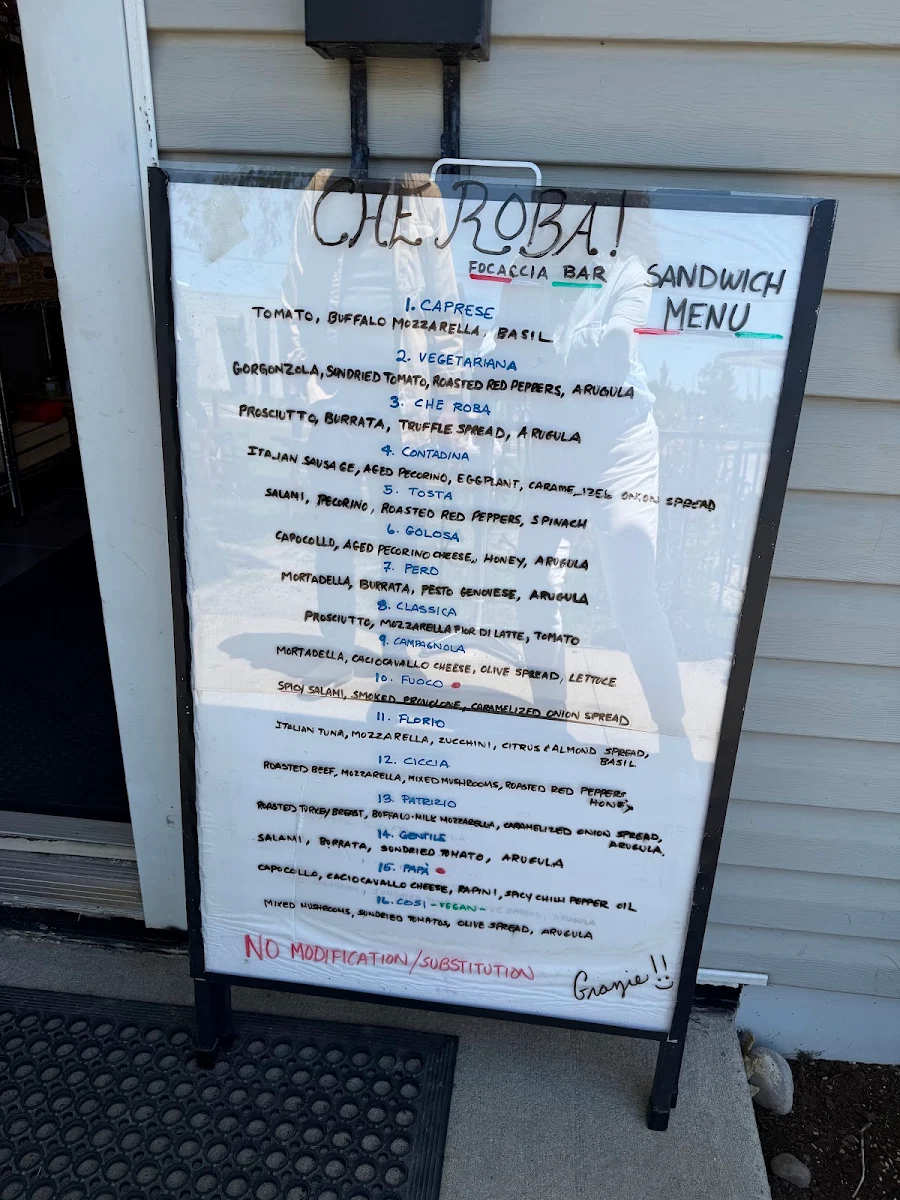 CHE ROBA!
FOCACCIA BAR
SANDWICH
MENU
1. CAPRESE
TOMATO, BUFFALO MOZZARELLA, BASIL
2. VEGETARIANA
GORGONZOLA, SUNDRIED TOMATO, ROASTED RED PEPPERS, ARUGULA
3. CHE ROBA
PROSCIUTTO, BURRATA, TRUFFLE SPREAD, ARUGULA
4. CONTADINA
ITALIAN SAUSAGE, AGED PECORINO, EGGPLANT, CARAMELIZED ONION SPREAD
5. TOSTA
SALAMI, PECORINO, ROASTED RED PEPPERS, SPINACH
6. GOLOSA
CAPOCOLLO, AGED PECORINO CHEESE, HONEY, ARUGULA
7. PERO
MORTADELLA, BURRATA, PESTO GENOVESE, ARUGULA
8. CLASSICA
PROSCIUTTO, MOZZARELLA FIOR DI LATTE, TOMATO
9. CAMPAGNOLA
MORTADELLA, CACIOCAVALLO CHEESE, OLIVE SPREAD, LETTUCE
10. FUOCO
SPICY SALAMI, SMOKED PROVOLONE, CARAMELIZED ONION SPREAD
11. FLORIO
ITALIAN TUNA, MOZZARELLA, ZUCCHINI, CITRUS & ALMOND SPREAD,
BASIL
12. CICCIA
ROASTED BEEF, MOZZARELLA, MIXED MUSHROOMS, ROASTED RED PEPPERS
HONEY
13. PATRIZIO
ROASTED TURKEY BREAST, BUFFALO-MILK MOZZARELLA, CARAMELIZED ONION SPREAD,
ARUGULA.
14. GENTILE
SALAMI, BURRATA, SUNDRIED TOMATO, ARUGULA
15. PAPÀ
CAPOCOLLO, CACIOCAVALLO CHEESE, RAPINI, SPICY CHILLI PEPPER OIL
16. COSI -VEGAN-
MIXED MUSHROOMS, SUNDRIED TOMATOS, OLIVE SPREAD, ARUGULA
NO MODIFICATION/SUBSTITUTION
Grazie!!